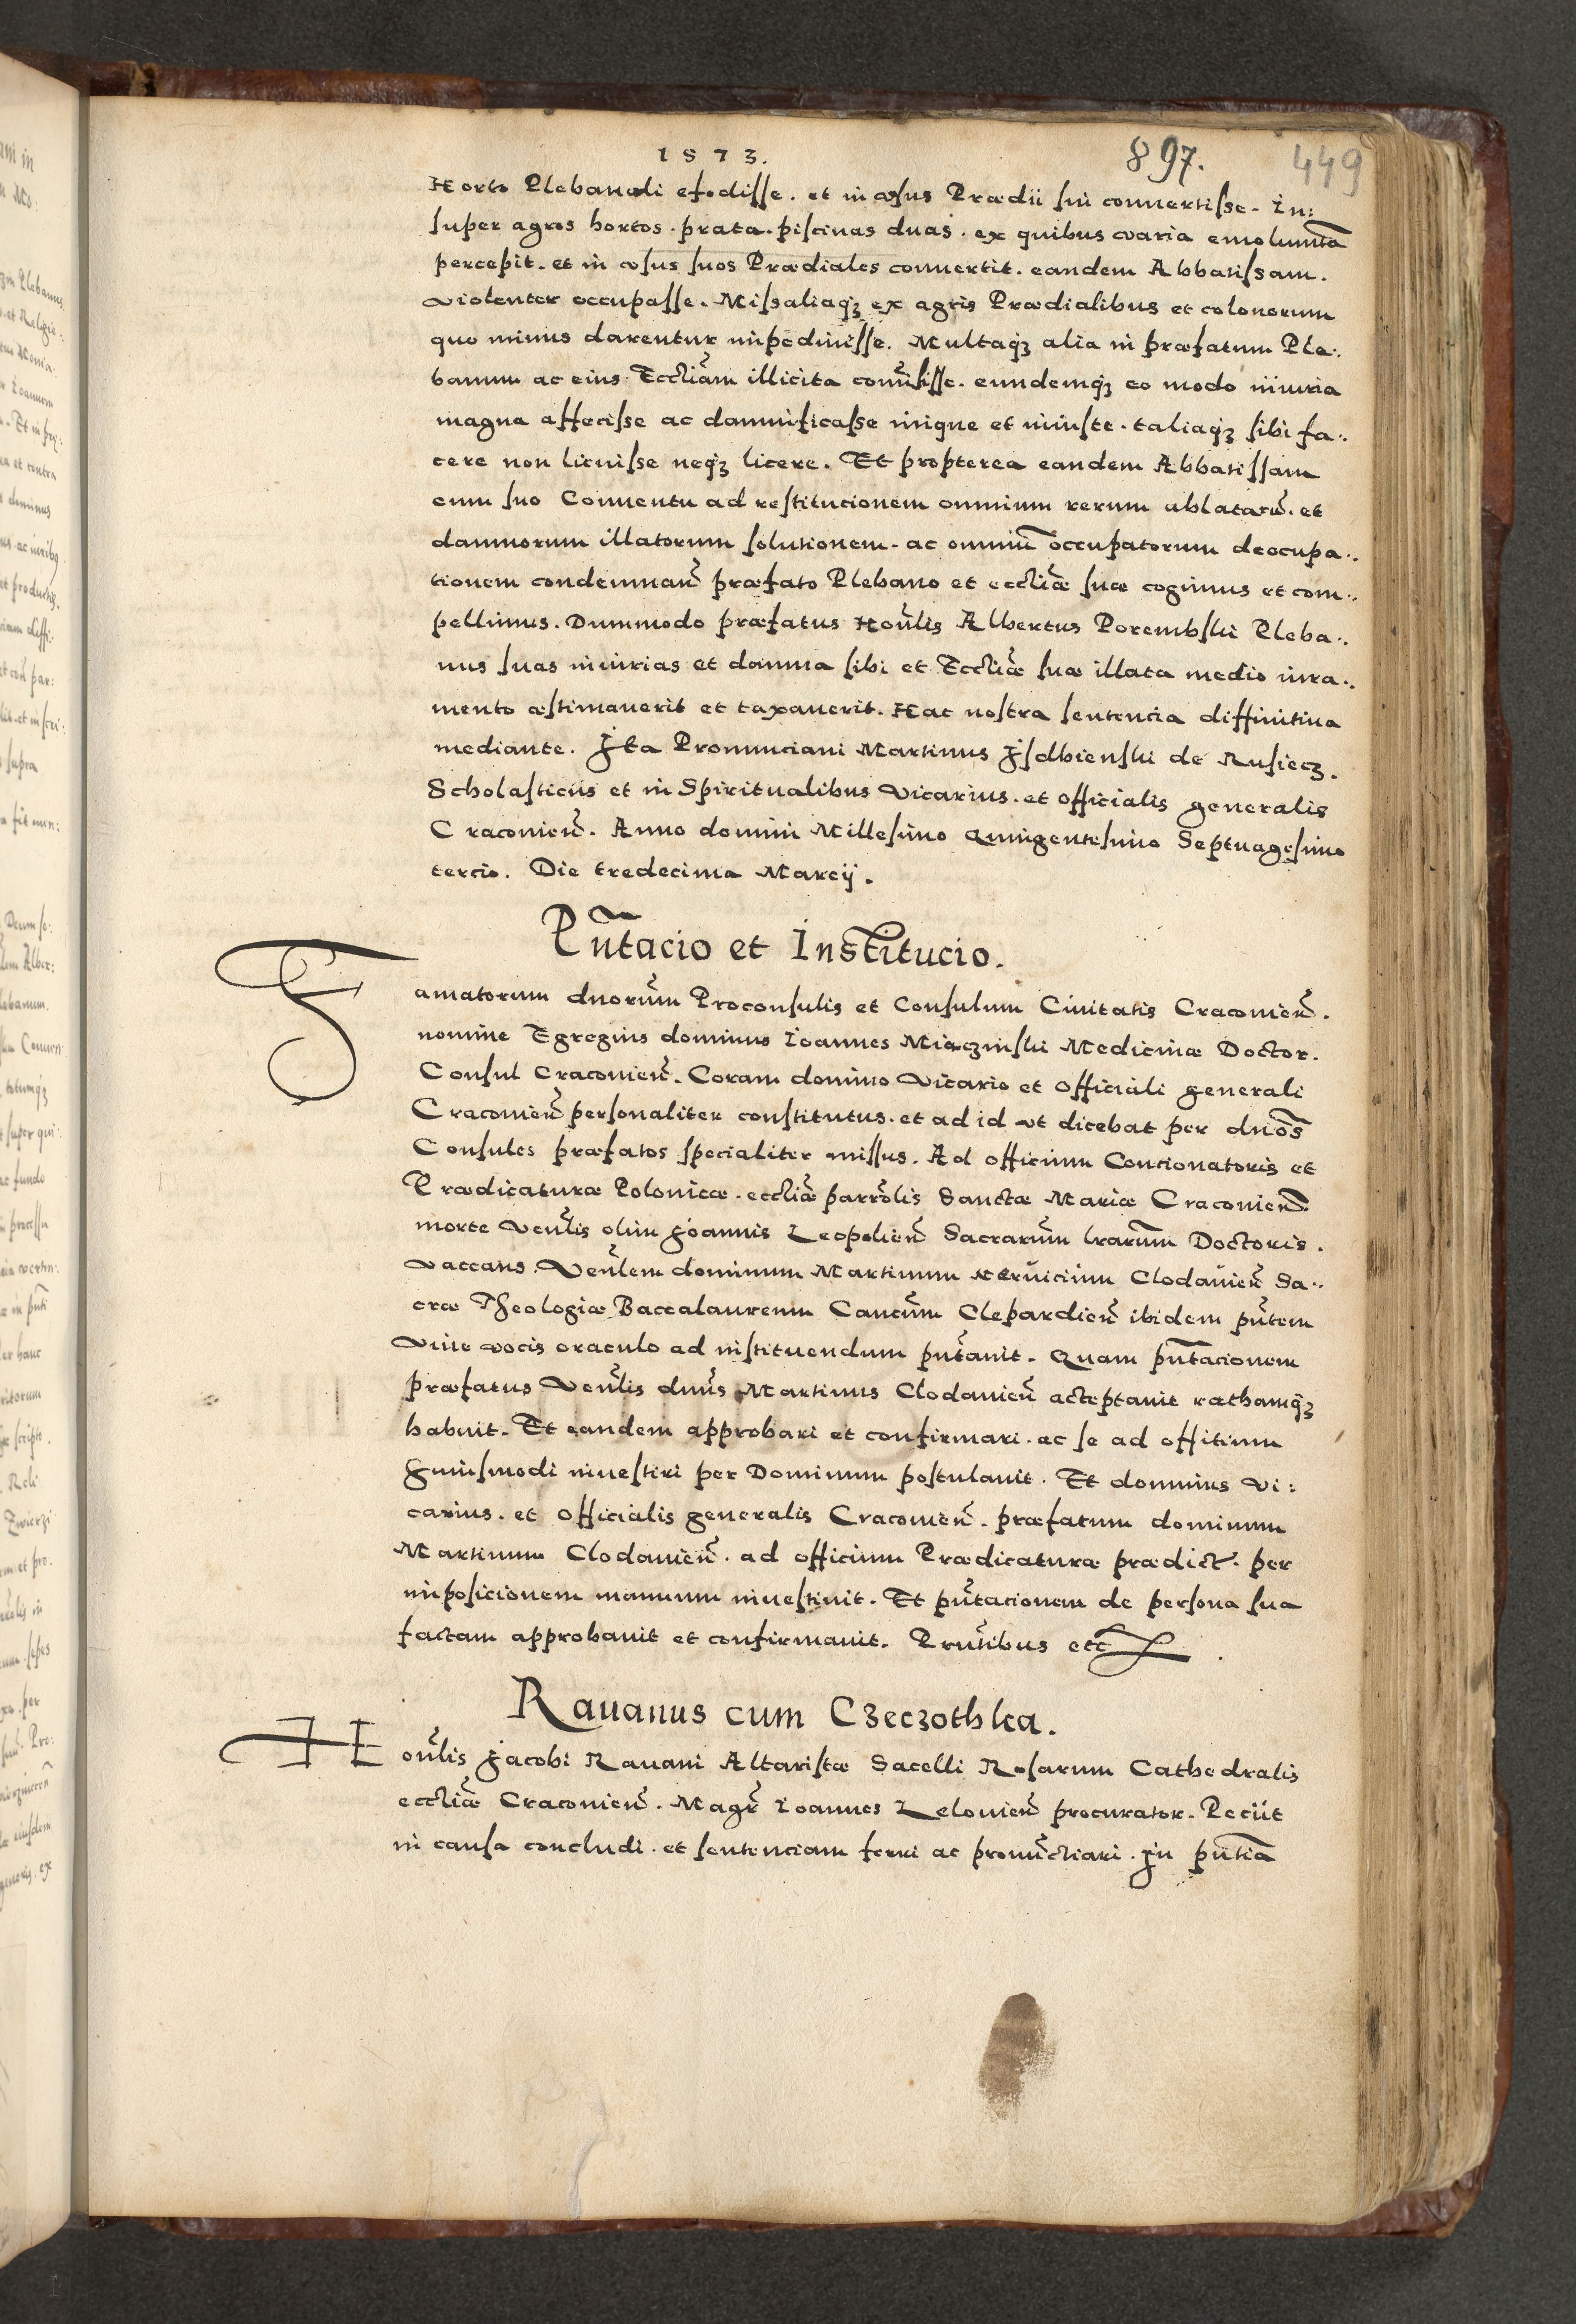 1573.
897. 449
Horto Plebanali efodisse. et in vsus Prædii sui conuertisse. In:
super agros hortos. prata. piscinas duas. ex quibus varia emolumẽta
percepit. et in vsus suos Prædiales conuertit. eandem Abbatissam.
violenter occupasse. Missaliaqȝ ex agris Prædialibus et colonorum
quo minus darentur impediuisse. Multaqȝ alia in præfatum Ple:
banum ac eius Eccliãm illicita com̃isisse. eundemqȝ eo modo iniuria
magna affecisse ac damnificasse inique et iniuste. taliaqȝ sibi fa:
cere non licuisse neqȝ licere. Et propterea eandem Abbatissam
cum suo Conuentu ad restitucionem omnium rerum ablatarũ. et
damnorum illatorum solutionem. ac omniũ occupatorum deocupa:
tionem condemnañ præfato Plebano et eccliæ̃ suæ cogimus et com:
pellimus. Dummodo præfatus Hoñlis Albertus Porembski Pleba:
nus suas iniurias et damna sibi et Eccliæ̃ suæ illata medio iura:
mento æstimauerit et taxauerit. Hac nostra sentencia diffinitiua
mediante. Ita Pronunciaui Martinus Isdbienski de Rusiecz.
Scholasticus et in Spiritualibus Vicarius. et Officialis generalis
Cracouieñ. Anno domini Millesimo Quingentesimo Septuagesimo
tercio. Die tredecima Marcij.
Pñtacio et Institucio.
Famatorum dnorũm Proconsulis et Consulum Ciuitatis Cracouieñ.
nomine Egregius dominus Ioannes Miaczinski Medicinæ Doctor.
Consul Cracouieñ. Coram domino Vicario et Officiali generali
Cracouieñ personaliter constitutus. et ad id vt dicebat per dnõs
Consules præfatos specialiter missus. Ad officium Concionatoris et
Prædicaturæ Polonicæ. eccliæ̃ parrõlis Sanctæ Mariæ Cracouieñ
morte Veñlis olim Joannis Leopolieñ Sacrarũm lrarũm Doctoris.
vaccans. Veñlem dominum Martinum Heruicium Clodauieñ Sa:
cræ Theologiæ Baccalaureum Cancũm Clepardieñ ibidem pñtem
Viue vocis oraculo ad instituendum pñtauit. Quam pñtacionem
præfatus Veñlis dnũs Martinus Clodauieñ acceptauit rathamqȝ
habuit. Et eandem approbari et confirmari. ac se ad offitium
huiusmodi inuestiri per Dominum postulauit. Et dominus Vi:
carius. et Officialis generalis Cracouieñ. præfatum dominum
Martinum Clodauieñ. ad officium Prædicaturæ prædict. per
imposicionem manuum inuestiuit. Et pñtacionem de persona sua
factam approbauit et confirmauit. Prñtibus etc̃.
Rauanus cum Czeczothka.
Hoñlis Jacobi Rauani Altaristæ Sacelli Rosarum Cathedralis
eccliæ̃ Cracouieñ. Magr̃ Ioannes Lelouieñ procurator. Peciit
in causa concludi. et sentenciam ferri ac pronuñctiari. In pñtiã